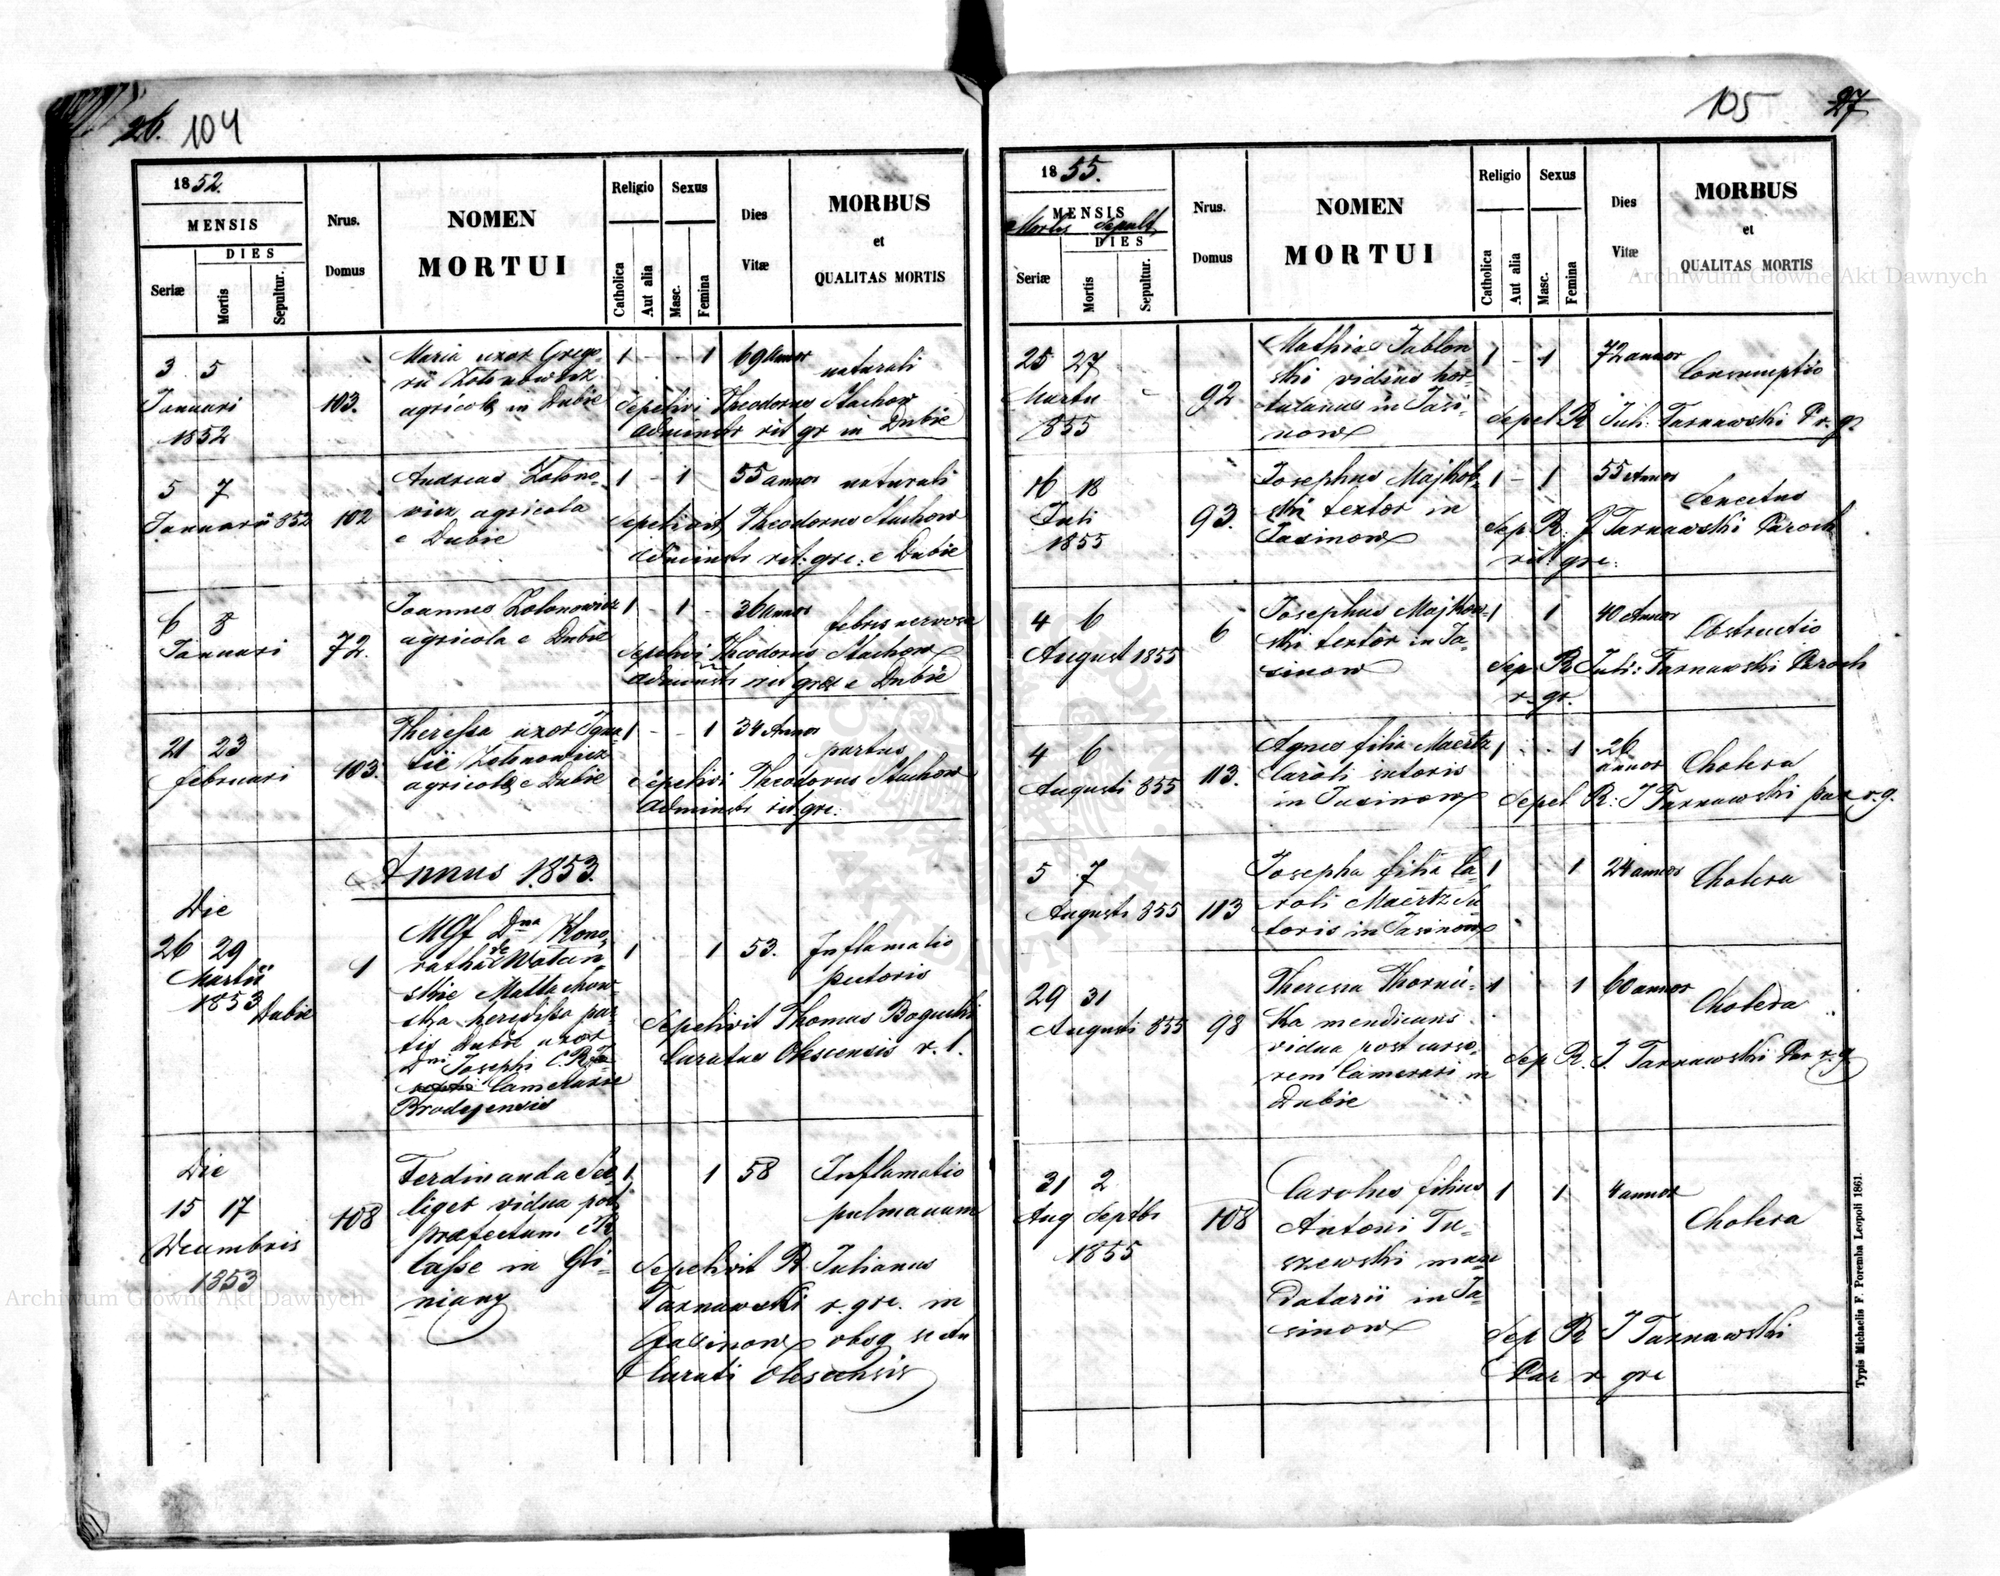 26. 104
1852.
MENSIS
DIES
Seriæ
Mortis
Sepultur.
Nrus.
Domus
NOMEN
MORTUI
Religio
Catholica
Aut alia
Sexus
Masc.
Femina
Dies
Vitæ
MORBUS
et
QUALITAS MORTIS
3 5
Januari
1852
103.
Maria uxor Grego-
rii Zotonowicz
agricola in Dubie
1 - - 1 69 Annor
naturali
Sepelivi Theodorus Stachow
administ rit gr in Dubie
5 7
Januarii 852
102
Andreas Zotono-
wicz agricola
e Dubie
1 - 1 55 annor naturali
Sepelivit Theodorus Stachow
administ rit: gre: e Dubie
6 8
Januari
72.
Joannes Zotonowicz
agricola e Dubie
1 - 1 - 36 Annor
febris nervosa
Sepelivi Theodorus Stachow
administ rit gre e Dubie
21 23
februari
103.
Theressa uxor Igna-
tii Zotonowicz
agricola e Dubie
1 - - 1 34 Annor
partus
Sepelivi Theodorus Stachow
administ rit gre:
Annus 1853.
Die
26 29
Martii
1853 Dubie
1
MGf Dna Hono-
ratha de
skie Mattachow
ska heredissa par-
tis Dubie uxor
Dni Josephi C. R.
Camerarii
Brodzensis
1 1 53. Inflamatio
pectoris
Sepelivit Thomas Bogucki
Curatus Olescensis r. l.
Die
15 17
Decembris
1853
108
Ferdinanda See-
liger vidua post
præfectum CR
Casse in Gli-
niany
1 1 58 Inflamatio
pulmonum
Sepelivit R. Julianus
Tarnawski r. gre. in
Jasinow
Curati Olescensis
105 27
1855.
MENSIS
Mortis Sepult.
DIES
Seriæ
Mortis
Sepultur.
Nrus.
Domus
NOMEN
MORTUI
Religio
Catholica
Aut alia
Sexus
Masc.
Femina
Dies
Vitæ
MORBUS
et
QUALITAS MORTIS
25 27
Martii
1855
92
Mathias Jablon-
ski viduus hor-
tulanus in Jasi-
now
1 - 1 72 annor
Consumptio
Sepel R Juli: Tarnawski P r. g.
16 18
Juli
1855
93.
Josephus Majkow-
ski textor in
Jasinow
1 - 1 55 Annor
Senectus
Sep R. J Tarnawski Paroch
rit gre:
4 6
August 1855
6
Josephus Majkow-
ski textor in Ja-
sinow
1 1 40 Annor
Obstructio
Sep R Juli: Tarnawski Paroch
r. gr.
4 6
Augusti 855
113.
Agnes filia Maertz
Caroli sutoris
in Jasinow
1 1 26
annor Cholera
Sepel R: J Tarnawski par r. g.
5 7
Augusti 855
113
Josepha filia Ca-
roli Maertz Su-
toris in Jasinow
1 1 24 annor Cholera
29 31
Augusti 855
98
Theresia Thornic-
ka mendicans
vidua post curso-
rem Camerari in
Dubie
1 1 60 annor
Cholera
Sep R. J. Tarnawski Par r. g
31 2
Aug Septbr
1855
108
Carolus filius
Antoni Tu-
szewski man-
datarii in Ja-
sinow
1 1 4 annor
Cholera
Sep R J Tarnawski
Par r gre
Typis Michaelis F. Poremba Leopoli 1861.
Archiwum Główne Akt Dawnych
Archiwum Główne Akt Dawnych